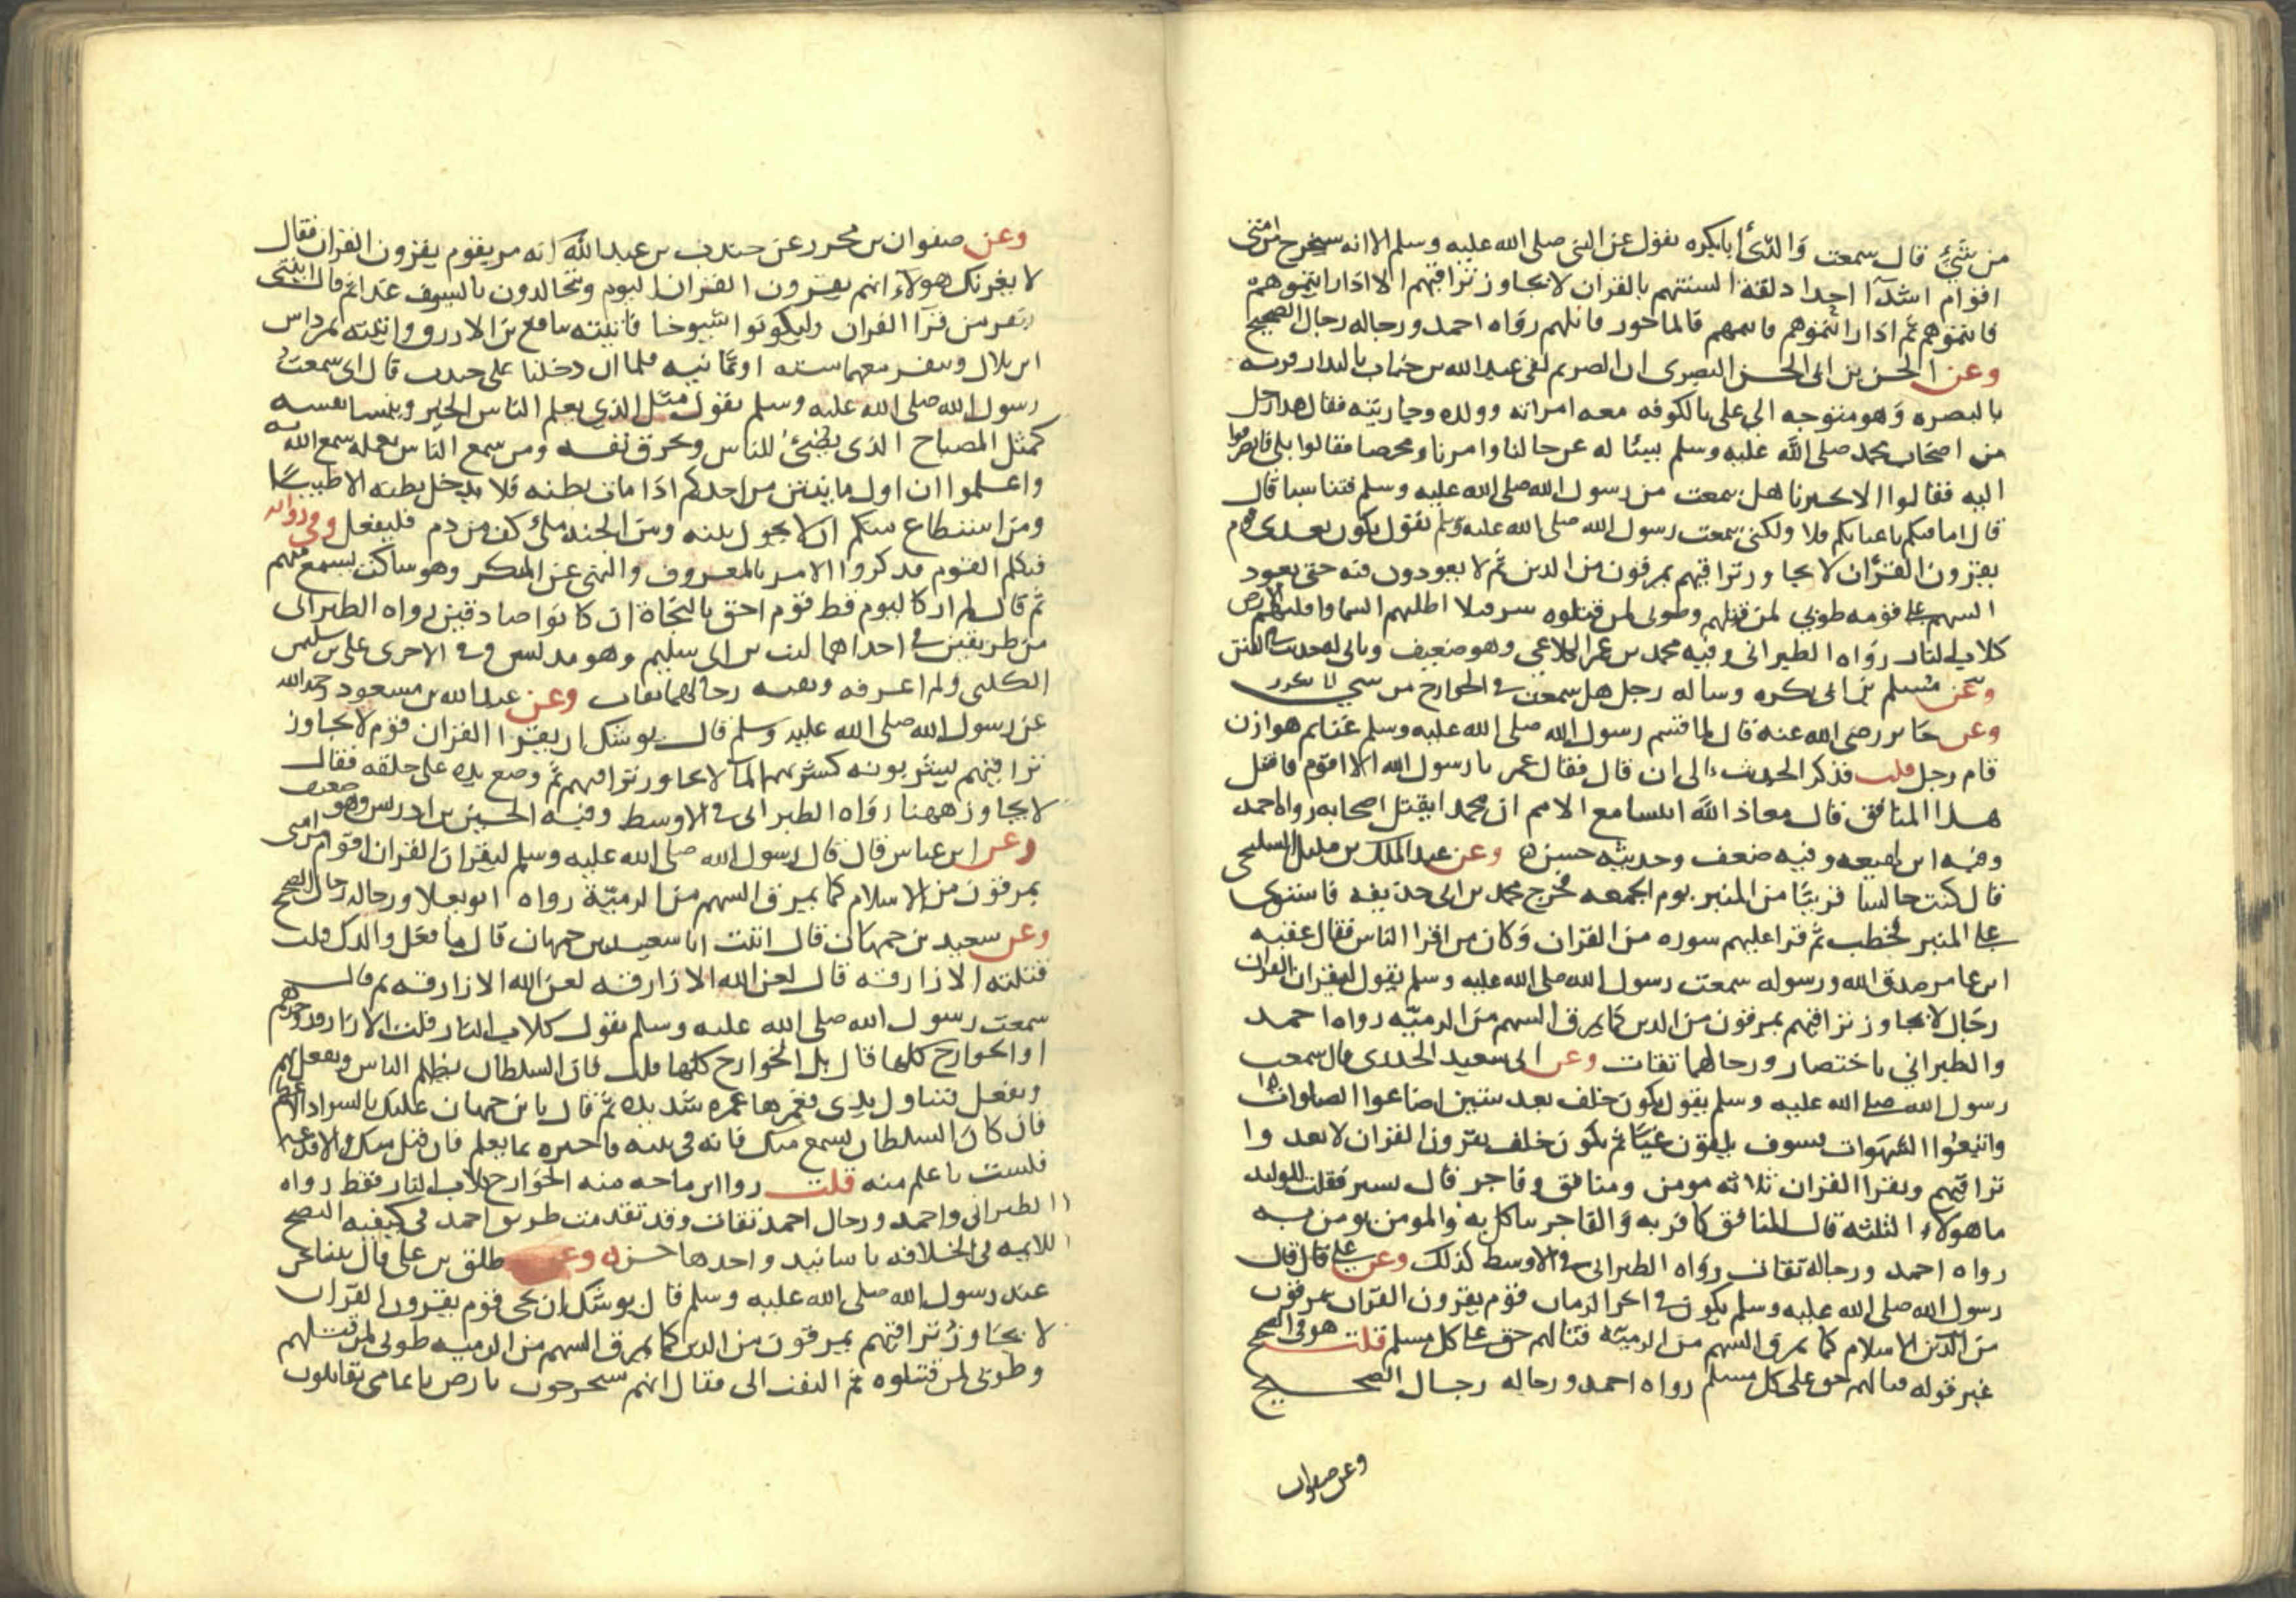 من شيء قال سمعت والدي أبا بكره يقول عن النبي صلى الله عليه وسلم الا انه سيخرج من امتي
اقوام اشدآ احدا دلقة السنتهم بالقران لا يجاوز تراقيهم الا اذا رايتموهم
فانيموهم ثم اذا رايتموهم فانيموهم فالماجور قاتلهم رواه احمد ورجاله رجال الصحيح
وعن الحسن بن ابي الحسن البصري ان الصريم لقي عبد الله بن خباب بالبدار قريه
بالبصره وهو متوجه الي علي بالكوفه معه امراته وولده وجاريته فقال هدا رجل
من اصحاب محمد صلى الله عليه وسلم نسئله عن حالنا وامرنا ومخرجنا فقالوا بلى فانصرفوا
اليه فقالوا الا تخبرنا هل سمعت من رسول الله صلى الله عليه وسلم فينا شيا قال
قال اما فيكم باعيانكم فلا ولكني سمعت رسول الله صلى الله عليه وسلم يقول يكون بعدي قوم
يقرون القران لا يجاوز تراقيهم يمرقون من الدين ثم لا يعودون فيه حتى يعود
السهم على فوقه طوبى لمن قتلهم وطوبى لمن قتلوه شر قتلا اطلتهم السما واقلتهم الارض
كلاب النار رواه الطبراني وفيه محمد بن عمر الكلاعي وهو ضعيف وياتي له حديث في الفتن
وعن مسلم بن ابي بكره وساله رجل هل سمعت في الخوارج من شي
وعن جابر رضي الله عنه قال لما قسم رسول الله صلى الله عليه وسلم غنايم هوازن
قام رجل قلت فذكر الحديث الى ان قال فقال عمر يا رسول الله الا اقوم فاقتل
هذا المنافق قال معاذ الله ان تتسامع الامم ان محمدا يقتل اصحابه رواه احمد
وفيه ابن لهيعه وفيه ضعف وحديثه حسن وعن عبد الملك بن مليل السليحي
قال كنت جالسا قريبا من المنبر يوم الجمعه فخرج محمد بن ابي حذيفه فاستوى
على المنبر فخطب ثم قرا عليهم سوره من القران وكان من اقرا الناس فقال عقبه
ابن عامر صدق الله ورسوله سمعت رسول الله صلى الله عليه وسلم يقول ليقران القران
رجال لا يجاوز تراقيهم يمرقون من الدين كما يمرق السهم من الرميه رواه احمد
والطبراني باختصار ورجالهما ثقات وعن ابي سعيد الخدري قال سمعت
رسول الله صلى الله عليه وسلم يقول يكون خلف بعد ستين اضاعوا الصلوات
واتبعوا الشهوات فسوف يلقون غيا ثم يكون خلف يقرون القران لا يعدوا
تراقيهم ويقرا القران ثلاثه مومن ومنافق وفاجر قال بسير فقلت للوليد
ما هولاء الثلثه قال المنافق كافر به والفاجر يتاكل به والمومن يومن به
رواه احمد ورجاله ثقات رواه الطبراني في الاوسط كذلك وعن علي قال قال
رسول الله صلى الله عليه وسلم يكون في اخر الزمان قوم يقرون القران يمرقون
من الدين الاسلام كما يمرق السهم من الرميه قتالهم حق على كل مسلم قلت هو في الصحيح
غير قوله قتالهم حق على كل مسلم رواه احمد ورجاله رجال الصحيح
وعن صفوان
وعن صفوان بن محرر عن جندب بن عبد الله انه مر بقوم يقرون القران فقال
لا يغرنك هولآء انهم يقرون القران اليوم ويتجالدون بالسيوف غدا ثم قال ايتني
بنفر من قرآ القران وليكونوا شيوخا فاتيته بنافع بن الازرق واتيته بمرداس
ابن بلال وبنفر معهما سته او ثمانيه فلما ان دخلنا على جندب قال اني سمعت
رسول الله صلى الله عليه وسلم يقول مثل الذي يعلم الناس الخير وينسا نفسه
كمثل المصباح الذي يضيء للناس ويحرق نفسه ومن سمع الناس بعمله سمع الله به
واعلموا ان اول ما ينتن من احدكم اذا مات بطنه فلا يدخل بطنه الا طيبا
ومن استطاع منكم ان لا يحول بينه وبين الجنه ملئ كف من دم فليفعل وفي روايه
فتكلم القوم فذكروا الامر بالمعروف والنهي عن المنكر وهو ساكت يسمع منهم
ثم قال لم ار كاليوم قط قوم احق بالنجاة ان كانوا صادقين رواه الطبراني
من طريقين في احداهما ليث بن ابي سليم وهو مدلس وفي الاخرى علي بن سليمن
الكلبي ولم اعرفه وبقيه رجالهما ثقات وعن عبد الله بن مسعود رحمه الله
عن رسول الله صلى الله عليه وسلم قال يوشك ان يقرا القران قوم لا يجاوز
تراقيهم يشربونه كشربهم الما لا يجاوز تراقيهم ثم وضع يده على حلقه فقال
لا يجاوز ههنا رواه الطبراني في الاوسط وفيه الحسين بن ادريس وهو ضعيف
وعن ابن عباس قال قال رسول الله صلى الله عليه وسلم ليقران القران اقوام من امتي
يمرقون من الاسلام كما يمرق السهم من الرميه رواه ابو يعلا ورجاله رجال الصحيح
وعن سعيد بن جمهان قال اتيت انا سعيد بن جمهان قال ما فعل والدك قلت
قتلته الازارقه قال لعن الله الازارقه لعن الله الازارقه ثم قال
سمعت رسول الله صلى الله عليه وسلم يقول كلاب النار قلت الازارقه وحدهم
او الخوارج كلها قال بل الخوارج كلها قلت فان السلطان يظلم الناس ويفعل بهم
ويفعل فتناول يدي فغمزها غمزه شديده ثم قال يا بن جمهان عليك بالسواد الاعظم
فان كان السلطان يسمع منك فاته في بيته فاخبره بما يعلم فان قبل منك والا فدعه
فلست باعلم منه قلت روا ابن ماجه منه الخوارج كلاب النار فقط رواه
الطبراني واحمد ورجال احمد ثقات وقد تقدمت طريق احمد في كيفيه النصح
للايمه في الخلافه باسانيد واحدها حسن وعن طلق بن علي قال بينا نحن
عند رسول الله صلى الله عليه وسلم قال يوشك ان يجي قوم يقرون القران
لا يجاوز تراقيهم يمرقون من الدين كما يمرق السهم من الرميه طوبى لمن قتلهم
وطوبى لمن قتلوه ثم التفت الي فقال انهم سيخرجون بارض يمامي تقاتلون